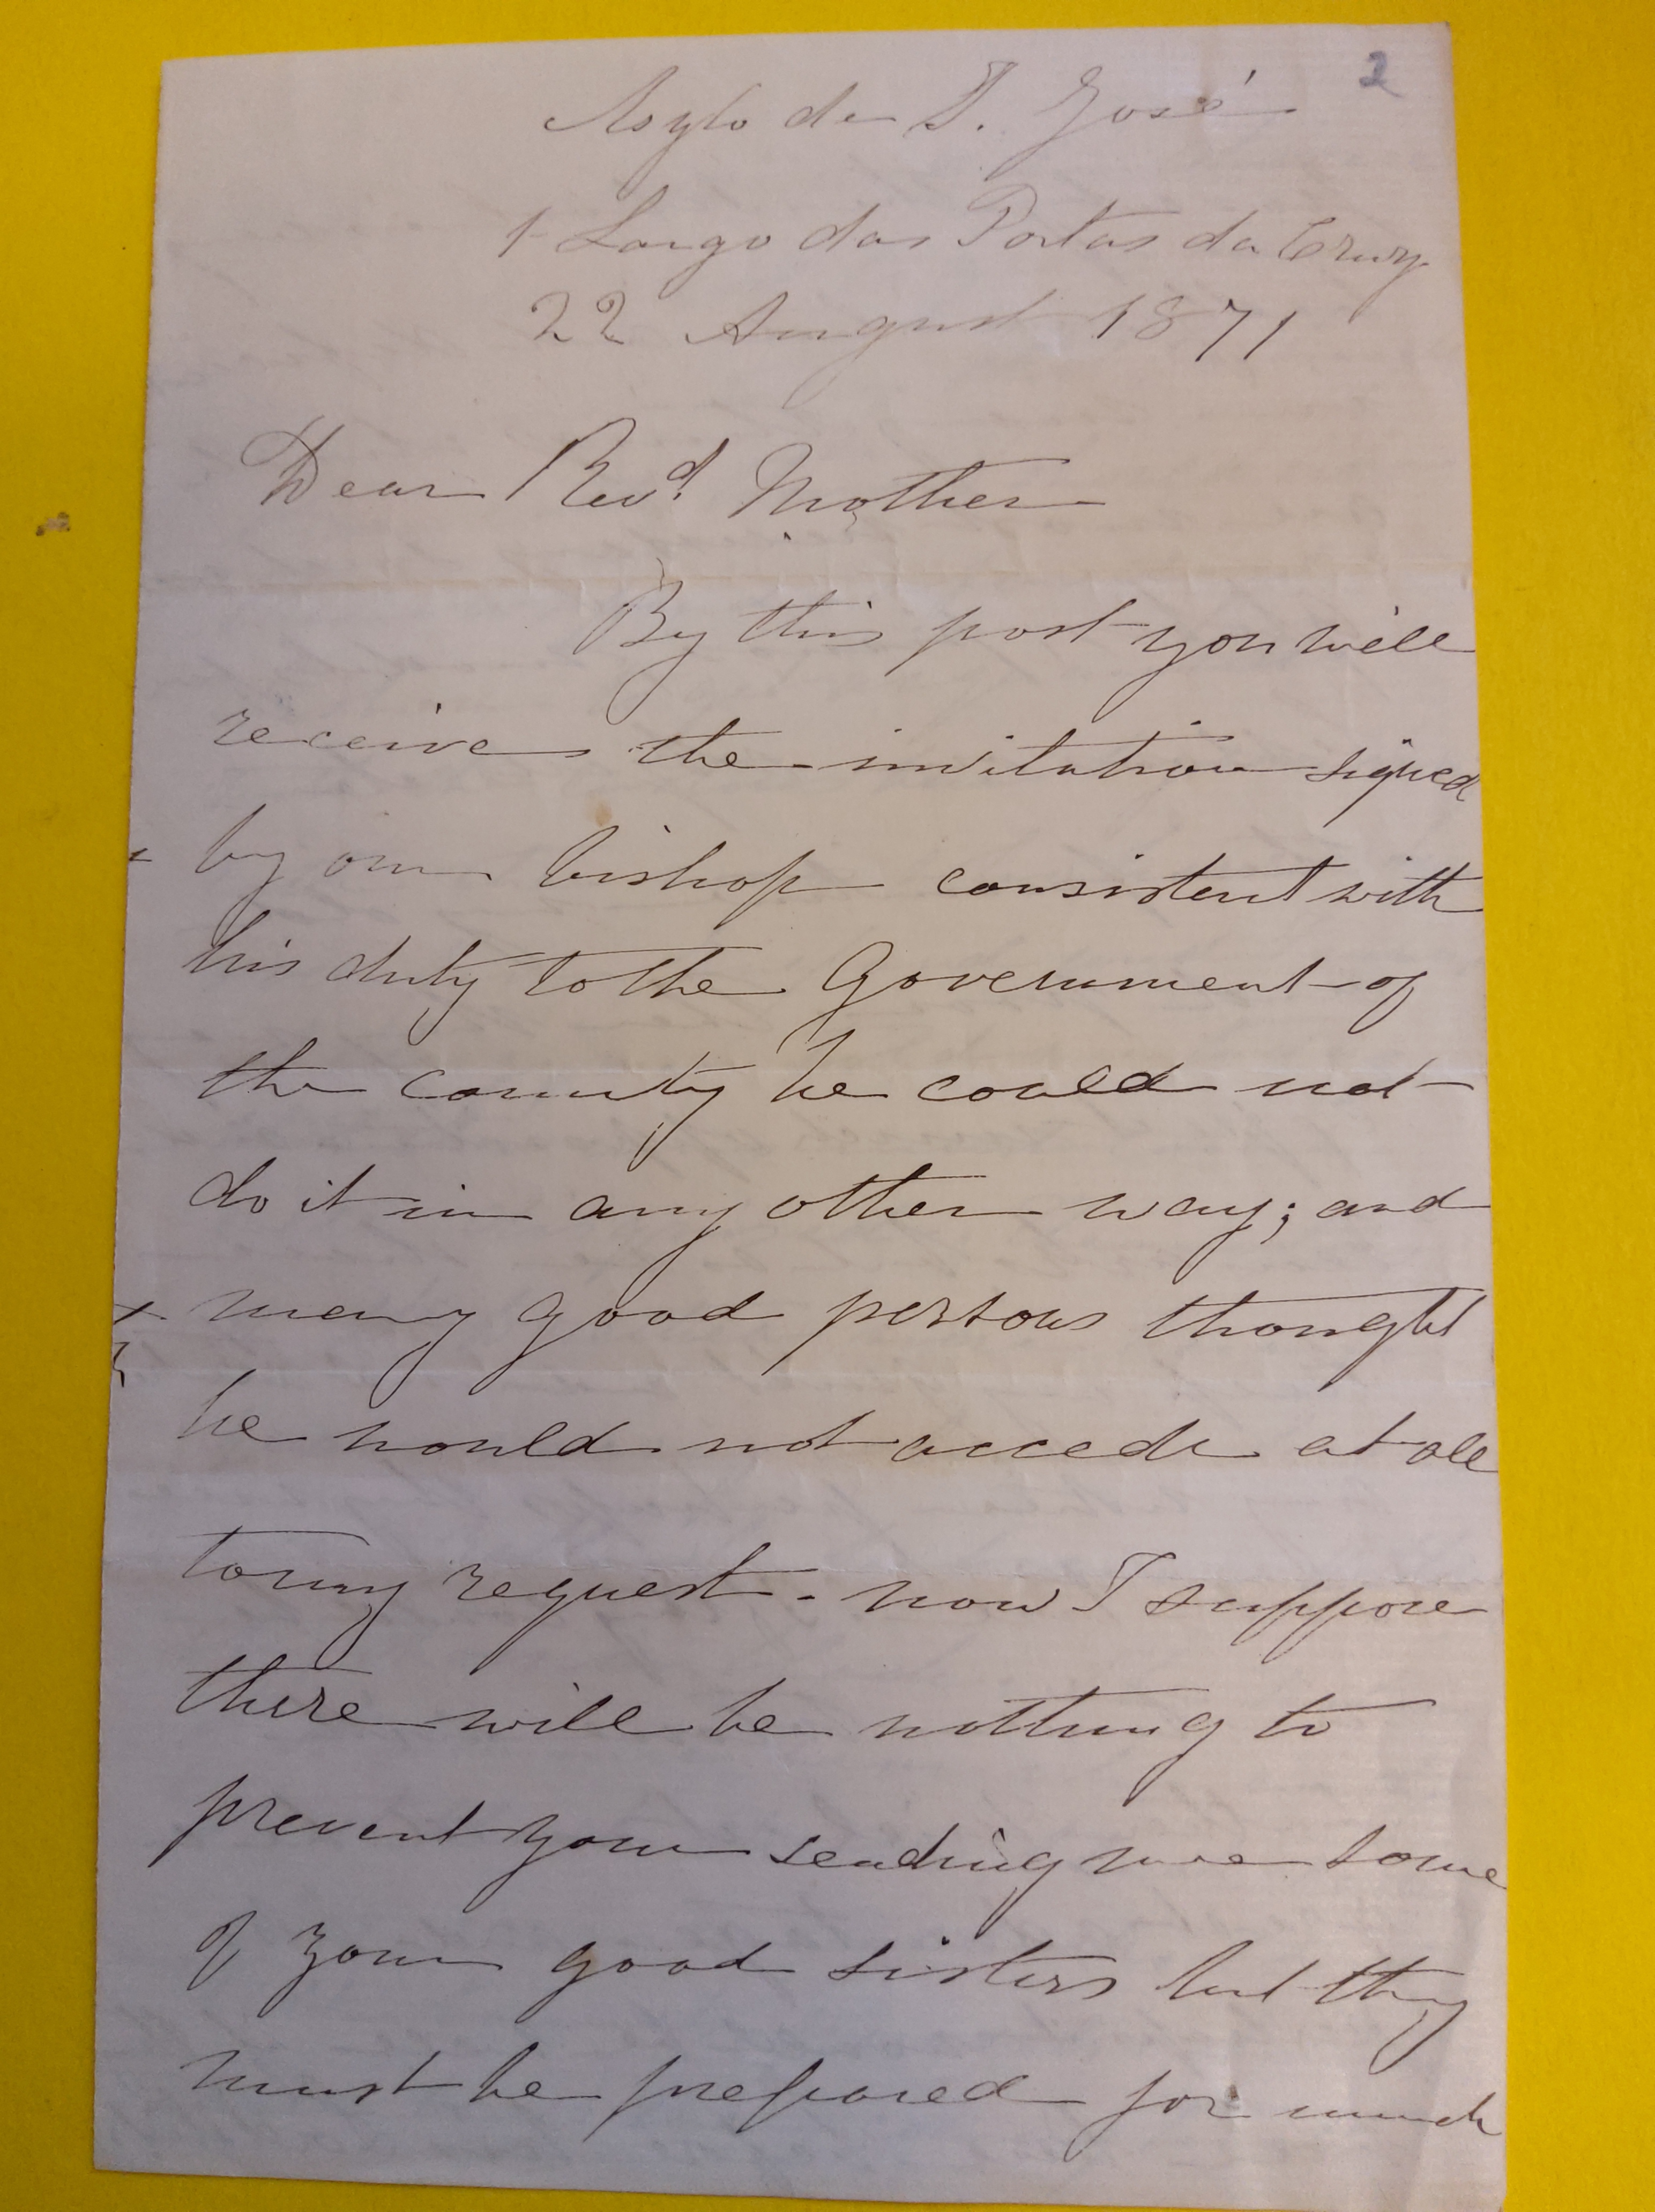 2
Asylo de S. José
1 Largo das Portas da Cruz
22 August 1871
Dear Revd. Mother
By this post you will
receive the invitation signed
by our bishop consistent with
his duty to the Government of
the country he could not
do it in any other way; and
many good persons thought
he would not accede at all
to my request. now I suppose
there will be nothing to
prevent your sending me some
of your good sisters but they
must be prepared for much